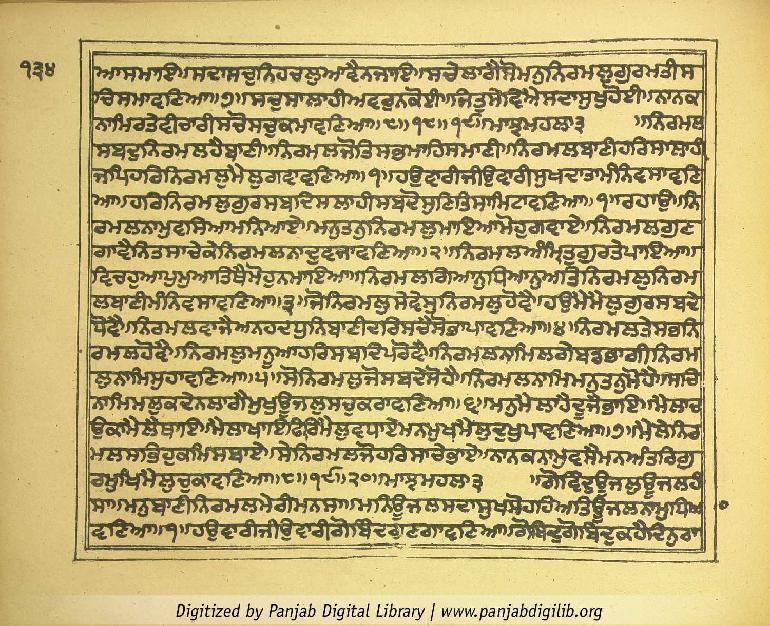 ੧੩੪
ਆਸਮਾਏ॥ਸਦਾਸਚੁਨਿਹਚਲੁਆਵੈਨਜਾਏ॥ਸਚੇਲਾਗੈਸੋਮਨੁਨਿਰਮਲੁਗੁਰਮਤੀਸ
ਚਿਸਮਾਵਣਿਆ॥੭॥ਸਚੁਸਾਲਾਹੀਅਵਰੁਨਕੋਈ॥ਜਿਤੁਸੇਵਿਐਸਦਾਸੁਖੁਹੋਈ॥ਨਾਨਕ
ਨਾਮਿਰਤੇਵੀਚਾਰੀਸਚੋਸਚੁਕਮਾਵਣਿਆ॥੮॥੧੮॥੧੯॥ਮਾਝਮਹਲਾ੩ ॥ਨਿਰਮਲ
ਸਬਦੁਨਿਰਮਲਹੈਬਾਣੀ॥ਨਿਰਮਲਜੋਤਿਸਭਮਾਹਿਸਮਾਣੀ॥ਨਿਰਮਲਬਾਣੀਹਰਿਸਾਲਾਹੀ
ਜਪਿਹਰਿਨਿਰਮਲੁਮੈਲੁਗਵਾਵਣਿਆ॥੧॥ਹਉਵਾਰੀਜੀਉਵਾਰੀਸੁਖਦਾਤਾਮੰਨਿਵਸਾਵਣਿ
ਆ॥ਹਰਿਨਿਰਮਲੁਗੁਰਸਬਦਿਸਲਾਹੀਸਬਦੋਸੁਣਿਤਿਸਾਮਿਟਾਵਣਿਆ॥੧॥ਰਹਾਉ॥ਨਿ
ਰਮਲਨਾਮੁਵਸਿਆਮਨਿਆਏ॥ਮਨੁਤਨੁਨਿਰਮਲੁਮਾਇਆਮੋਹੁਗਵਾਏ॥ਨਿਰਮਲਗੁਣ
ਗਾਵੈਨਿਤਸਾਚੇਕੇਨਿਰਮਲਨਾਦੁਵਜਾਵਣਿਆ॥੨॥ਨਿਰਮਲਅੰਮ੍ਰਿਤੁਗੁਰਤੇਪਾਇਆ॥
ਵਿਚਹੁਆਪੁਮੁਆਤਿਥੈਮੋਹੁਨਮਾਇਆ॥ਨਿਰਮਲਗਿਆਨੁਧਿਆਨੁਅਤਿਨਿਰਮਲੁਨਿਰਮ
ਲਬਾਣੀਮੰਨਿਵਸਾਵਣਿਆ॥੩॥ਜੋਨਿਰਮਲੁਸੇਵੇਸੁਨਿਰਮਲੁਹੋਵੈ॥ਹਉਮੈਮੈਲੁਗੁਰਸਬਦੇ
ਧੋਵੈ॥ਨਿਰਮਲਵਾਜੈਅਨਹਦਧੁਨਿਬਾਣੀਦਰਿਸਚੈਸੋਭਾਪਾਵਣਿਆ॥੪॥ਨਿਰਮਲਤੇਸਭਨਿ
ਰਮਲਹੋਵੈ॥ਨਿਰਮਲੁਮਨੂਆਹਰਿਸਬਦਿਪਰੋਵੈ॥ਨਿਰਮਲਨਾਮਿਲਗੇਬਡਭਾਗੀਨਿਰਮ
ਲੁਨਾਮਿਸੁਹਾਵਣਿਆ॥੫॥ਸੋਨਿਰਮਲੁਜੋਸਬਦੇਸੋਹੈ॥ਨਿਰਮਲਨਾਮਿਮਨੁਤਨੁਮੋਹੈ॥ਸਚਿ
ਨਾਮਿਮਲੁਕਦੇਨਲਾਗੈਮੁਖੁਊਜਲੁਸਚੁਕਰਾਵਣਿਆ॥੬॥ਮਨੁਮੈਲਾਹੈਦੂਜੈਭਾਇ॥ਮੈਲਾਚ
ਉਕਾਮੈਲੈਥਾਇ॥ਮੈਲਾਖਾਇਫਿਰਿਮੈਲੁਵਧਾਏਮਨਮੁਖਮੈਲੁਦੁਖੁਪਾਵਣਿਆ॥੭॥ਮੈਲੇਨਿਰ
ਮਲਸਭਿਹੁਕਮਿਸਬਾਏ॥ਸੇਨਿਰਮਲਜੋਹਰਿਸਾਚੇਭਾਏ॥ਨਾਨਕਨਾਮੁਵਸੈਮਨਅੰਤਰਿਗੁ
ਰਮੁਖਿਮੈਲੁਚੁਕਾਵਣਿਆ॥੮॥੧੯॥੨੦॥ਮਾਝਮਹਲਾ੩ ॥ਗੋਵਿੰਦੁਊਜਲੁਊਜਲਹੰ
ਸਾ॥ਮਨੁਬਾਣੀਨਿਰਮਲਮੇਰੀਮਨਸਾ॥ਮਨਿਊਜਲਸਦਾਮੁਖਸੋਹਹਿਅਤਿਊਜਲਨਾਮੁਧਿਆ
ਵਣਿਆ॥੧॥ਹਉਵਾਰੀਜੀਉਵਾਰੀਗੋਬਿੰਦਗੁਣਗਾਵਣਿਆ॥ਗੋਬਿਦੁਗੋਬਿਦੁਕਹੈਦਿਨੁਰਾ
Digitized by Panjab Digital Library | www.panjabdigilib.org